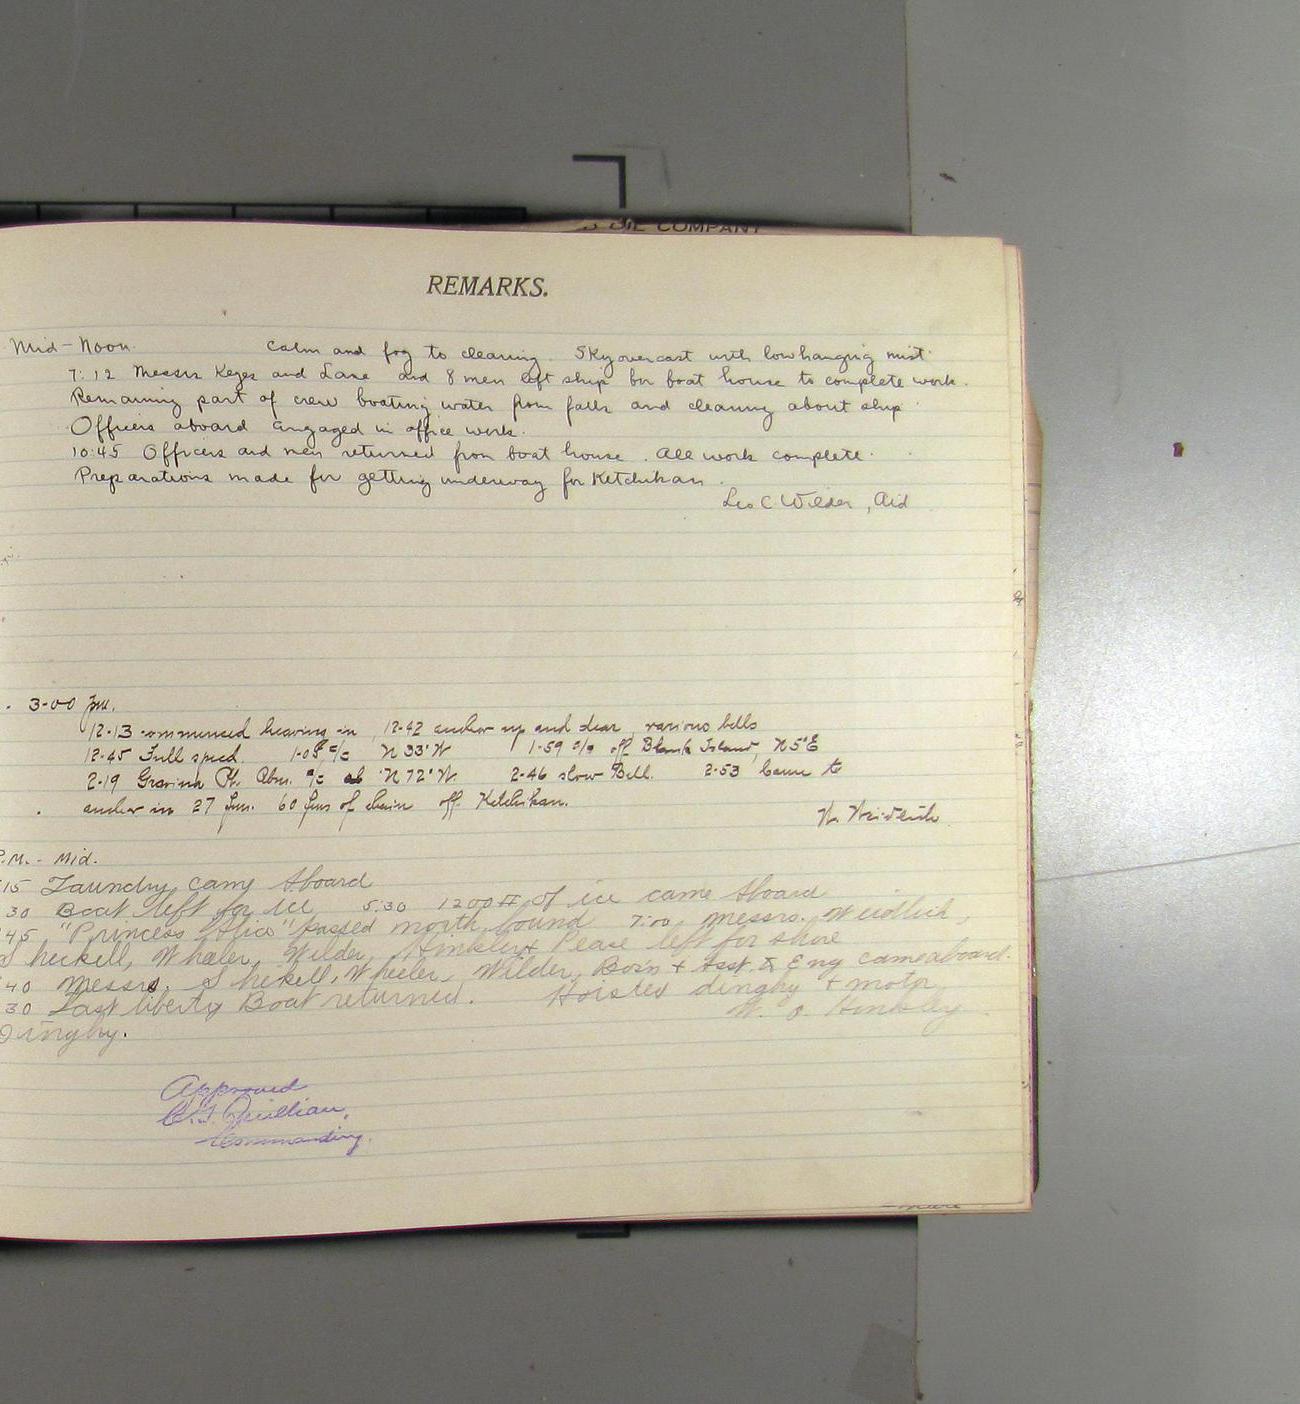 OIL COMPANY
REMARKS.
Mid-Noon. Calm and fog to clearing. Sky overcast with low hanging mist.
7:12 Messrs Keyes and Lane and 8 men left ship for boat house to complete work.
Remaining part of crew boating water from falls and cleaning about ship.
Officers aboard engaged in office work.
10:45 Officers and men returned from boat house. All work complete.
Preparations made for getting underway for Ketchikan.
Leo C. Wilder, Aid
3-00 P.M.
12-13 commenced heaving in, 12-42 anchor up and clear, various bells
12-45 Full speed. 1-05 c/c N 33° W 1-59 c/c off Blank Island, N 5° E
2-19 Gravina Pt. Abm. c/c N 72° W. 2-46 slow Bell. 2-53 Came to
anchor in 27 fms. 60 fms of chain off Ketchikan.
P.M. - Mid.
15 Laundry came aboard
30 Boat left for ice 5:30 1200# of ice came aboard
45 "Princess Alice" passed north bound 7:00 Messrs. Weidlich
Shekell, Wheeler, Wilder, Hinkley + Pease left for shore
40 Messrs. Shekell, Wheeler, Wilder, Bos'n + Asst. Eng came aboard.
30 Last liberty Boat returned. Hoisted dinghy + motor
W. O. Hinkley
Dinghy.
Approved
Quillian,
Commanding.